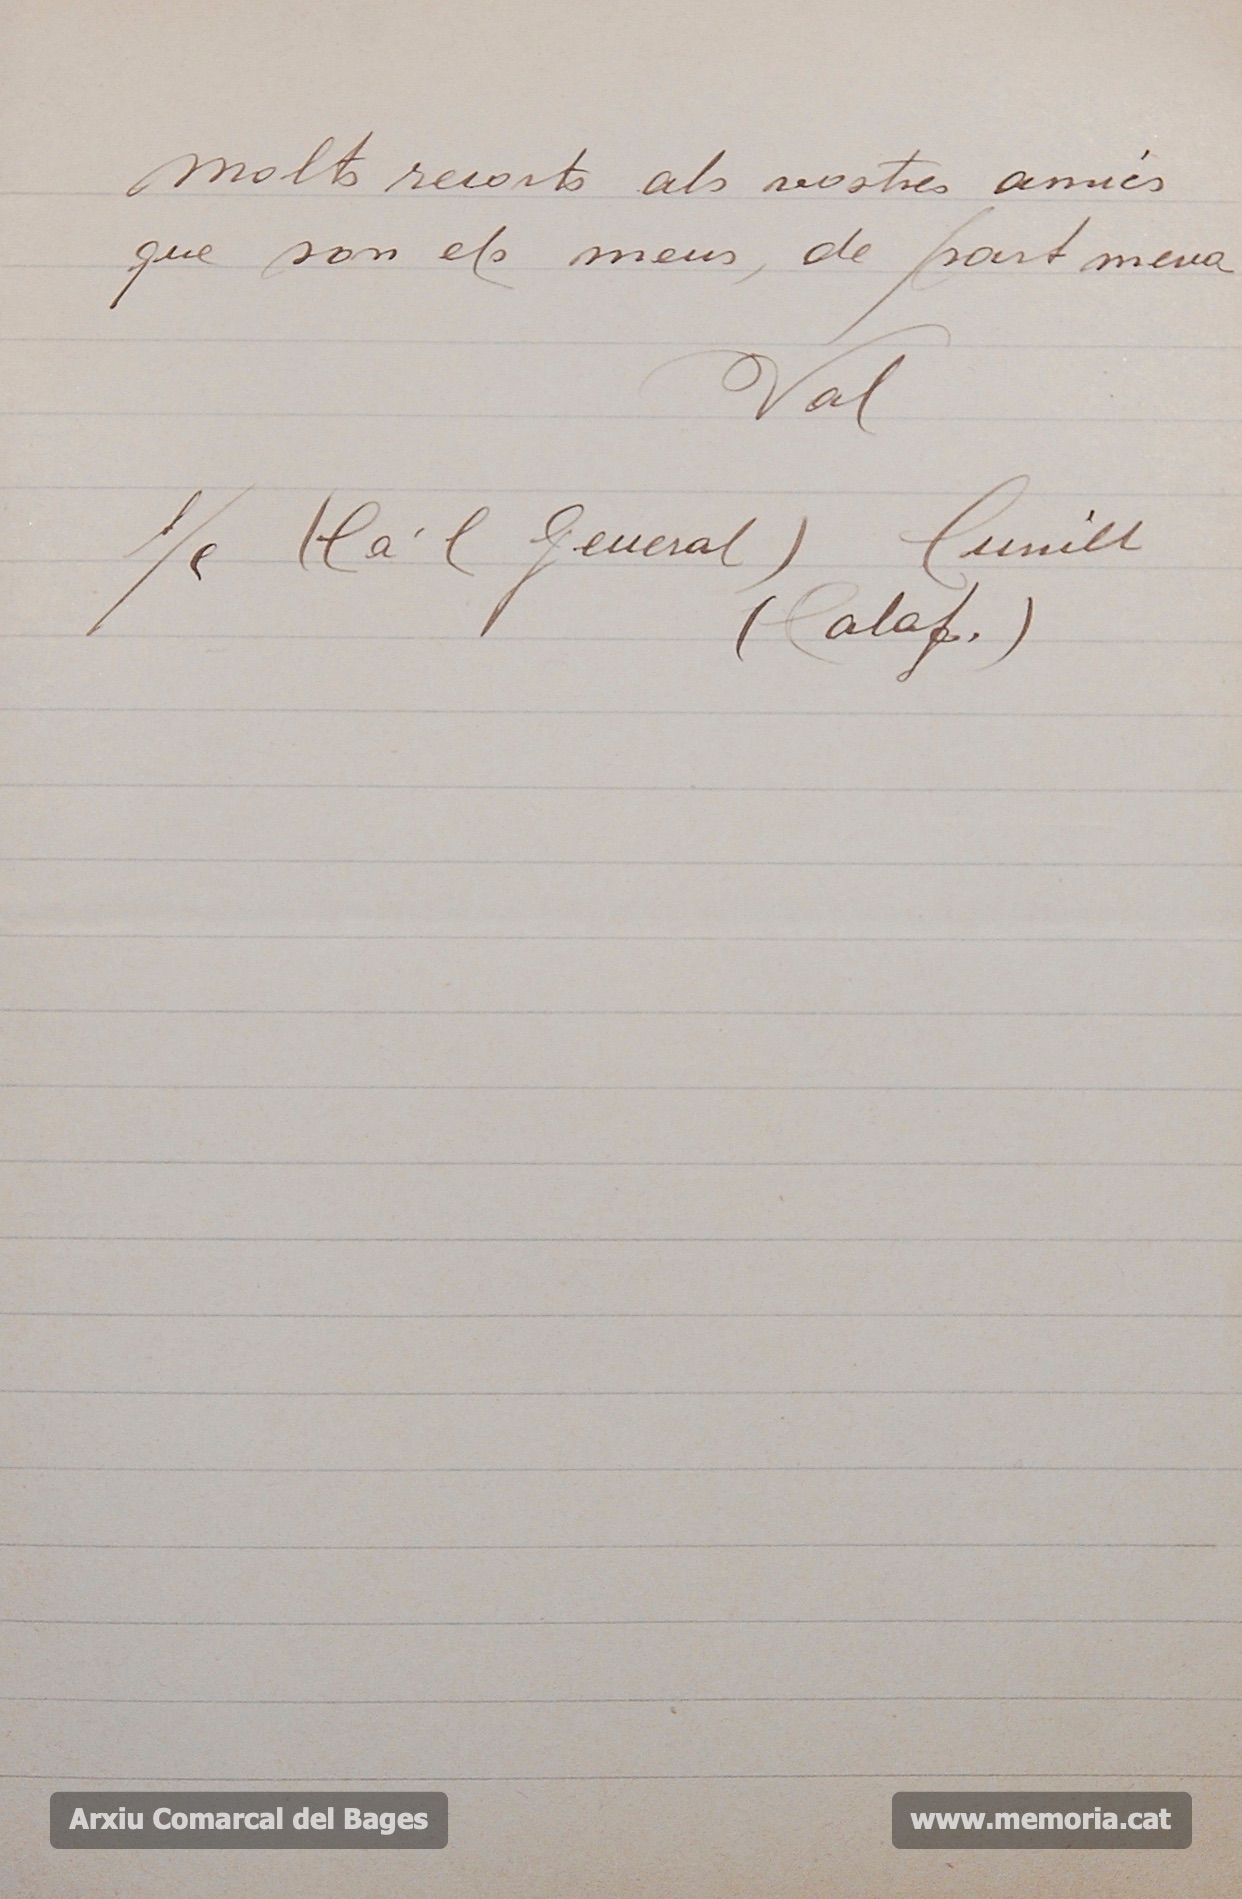 Molts recorts als vostres amics
que son els meus, de part meva
Val
(Ca'l General) Cunill
(Calaf.)
Arxiu Comarcal del Bages
www.memoria.cat